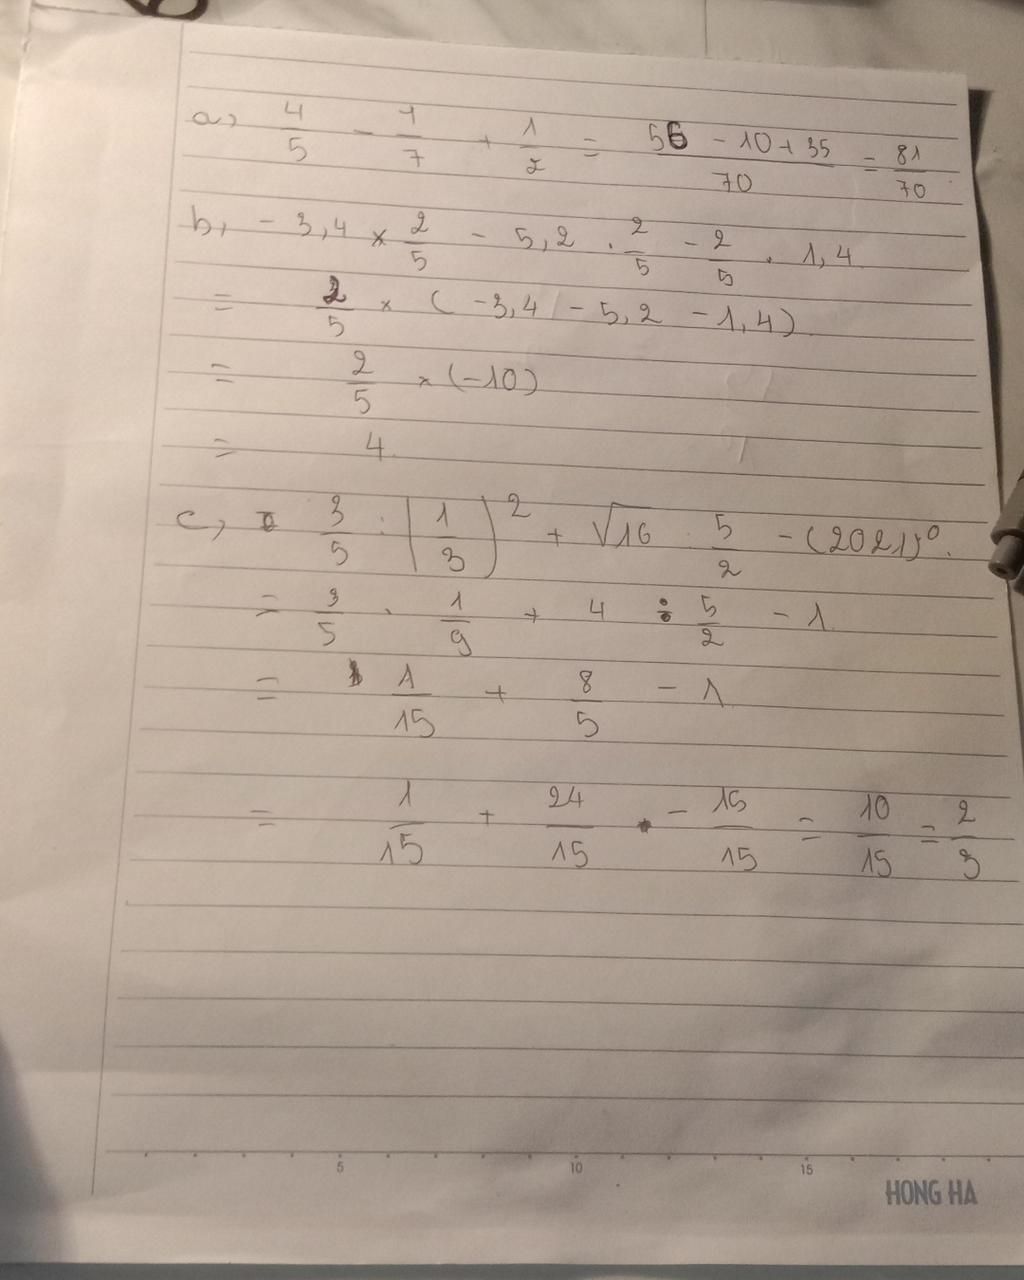 a, 4/5 - 1/7 + 1/2 = (56 - 10 + 35)/70 = 81/70
b, - 3,4 × 2/5 - 5,2 . 2/5 - 2/5 . 1,4
= 2/5 × (-3,4 - 5,2 - 1,4)
= 2/5 × (-10)
= 4
c, 3/5 . (1/3)² + √16 5/2 - (2021)⁰.
= 3/5 . 1/9 + 4 ÷ 5/2 - 1
= 1/15 + 8/5 - 1
= 1/15 + 24/15 - 15/15 = 10/15 = 2/3
5 10 15
HONG HA